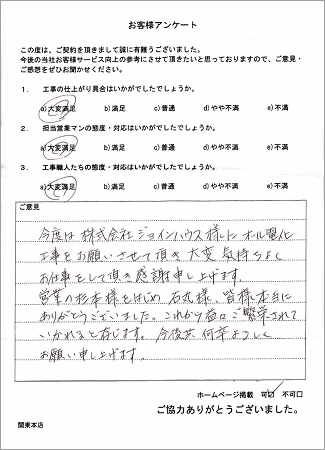 お客様アンケート
この度は、ご契約を頂きまして誠に有難うございました。
今後の当社お客様サービス向上の参考にさせて頂きたいと思っておりますので、ご意見・
ご感想をぜひお聞かせください。
1. 工事の仕上がり具合はいかがでしたでしょうか。
a)大変満足 b)満足 c)普通 d)やや不満 e)不満
2. 担当営業マンの態度・対応はいかがでしたでしょうか。
a)大変満足 b)満足 c)普通 d)やや不満 e)不満
3. 工事職人たちの態度・対応はいかがでしたでしょうか。
a)大変満足 b)満足 c)普通 d)やや不満 e)不満
ご意見
今度は株式会社ジョインハウス様に オール電化
工事をお願いさせて頂き 大変 気持ちよく
お仕事をして頂き感謝申し上げます。
営業の杉本様をはじめ 石丸様、皆様本当に
ありがとうございました。これから益々ご繁栄されて
いかれると存じます。今後共 何卒よろしく
お願い申し上げます。
ホームページ掲載 可□ 不可□
ご協力ありがとうございました。
関東本店